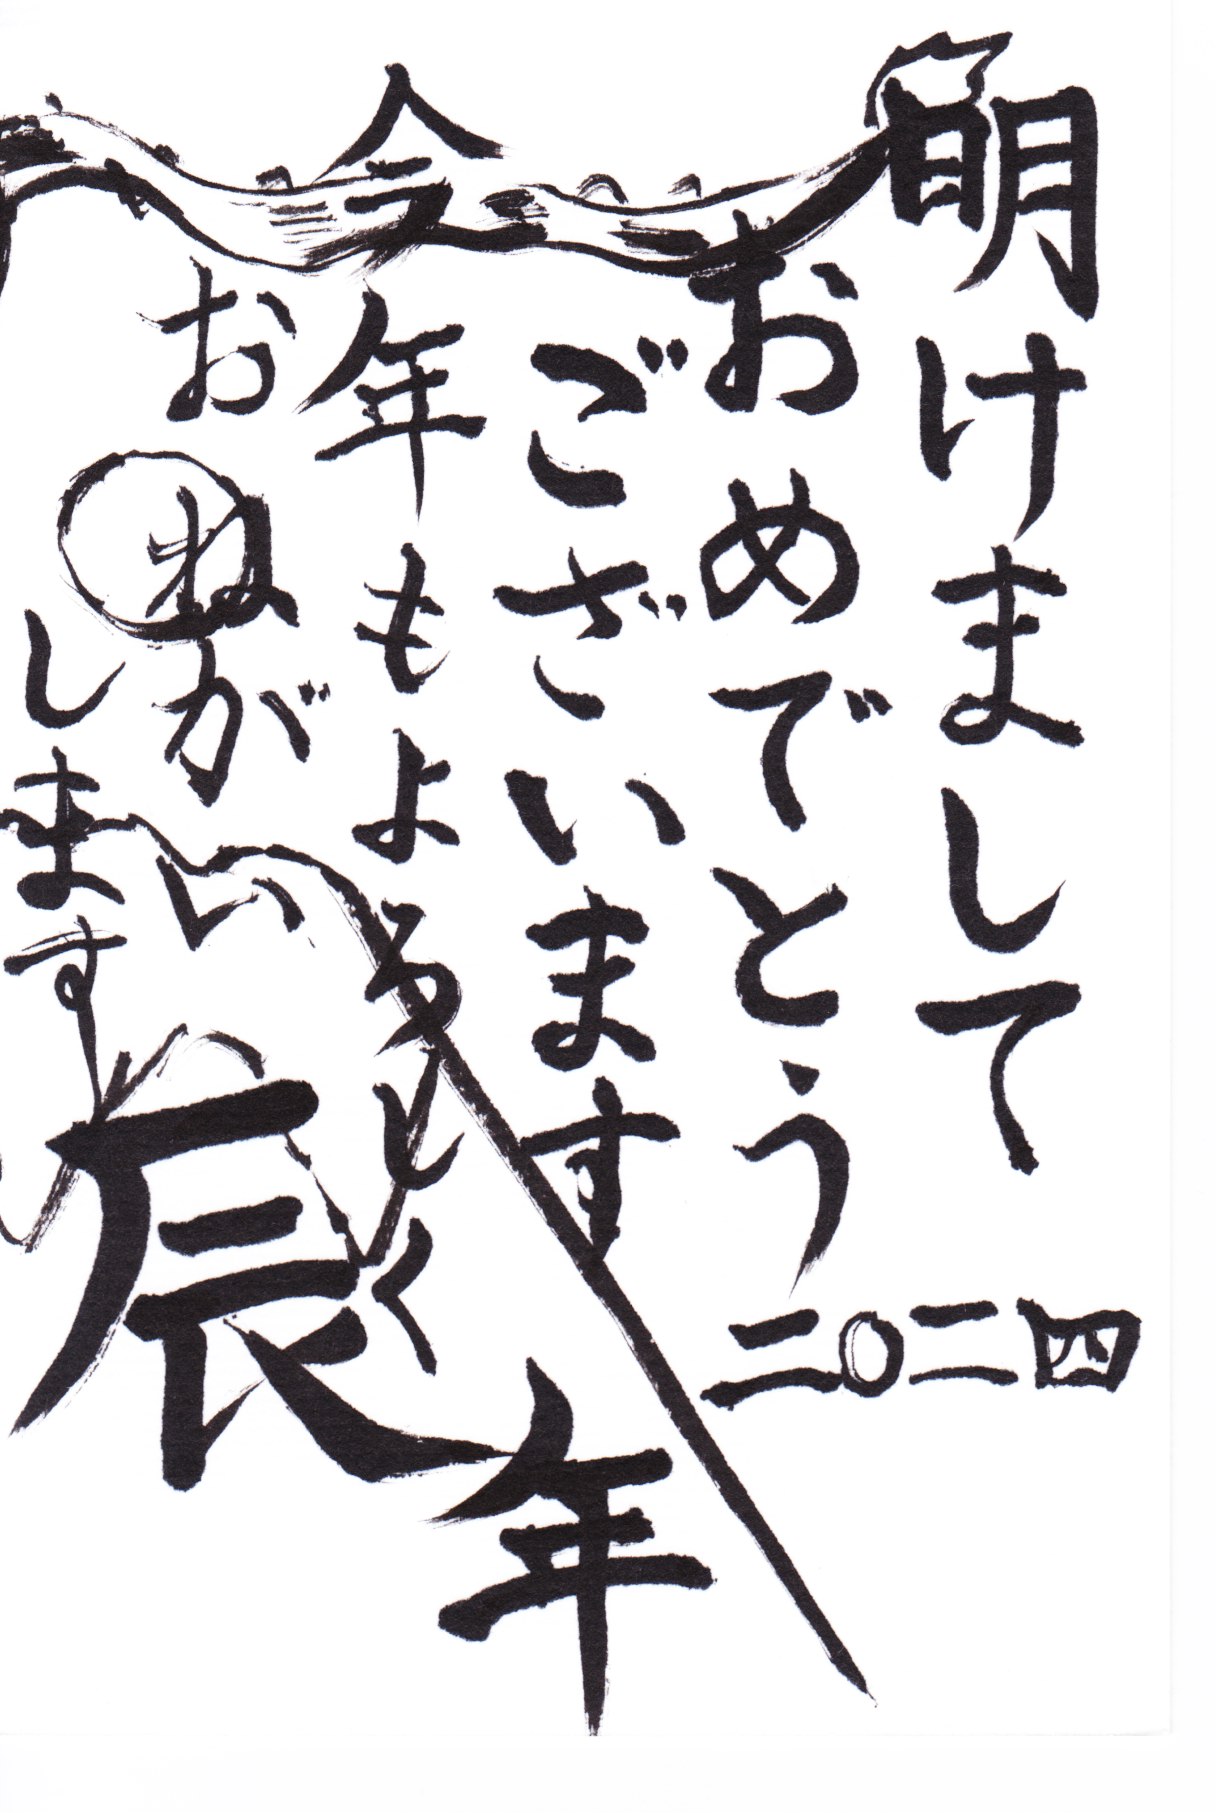 明けまして
おめでとう
ございます
今年もよろしく
おねがい
します
二〇二四
辰年